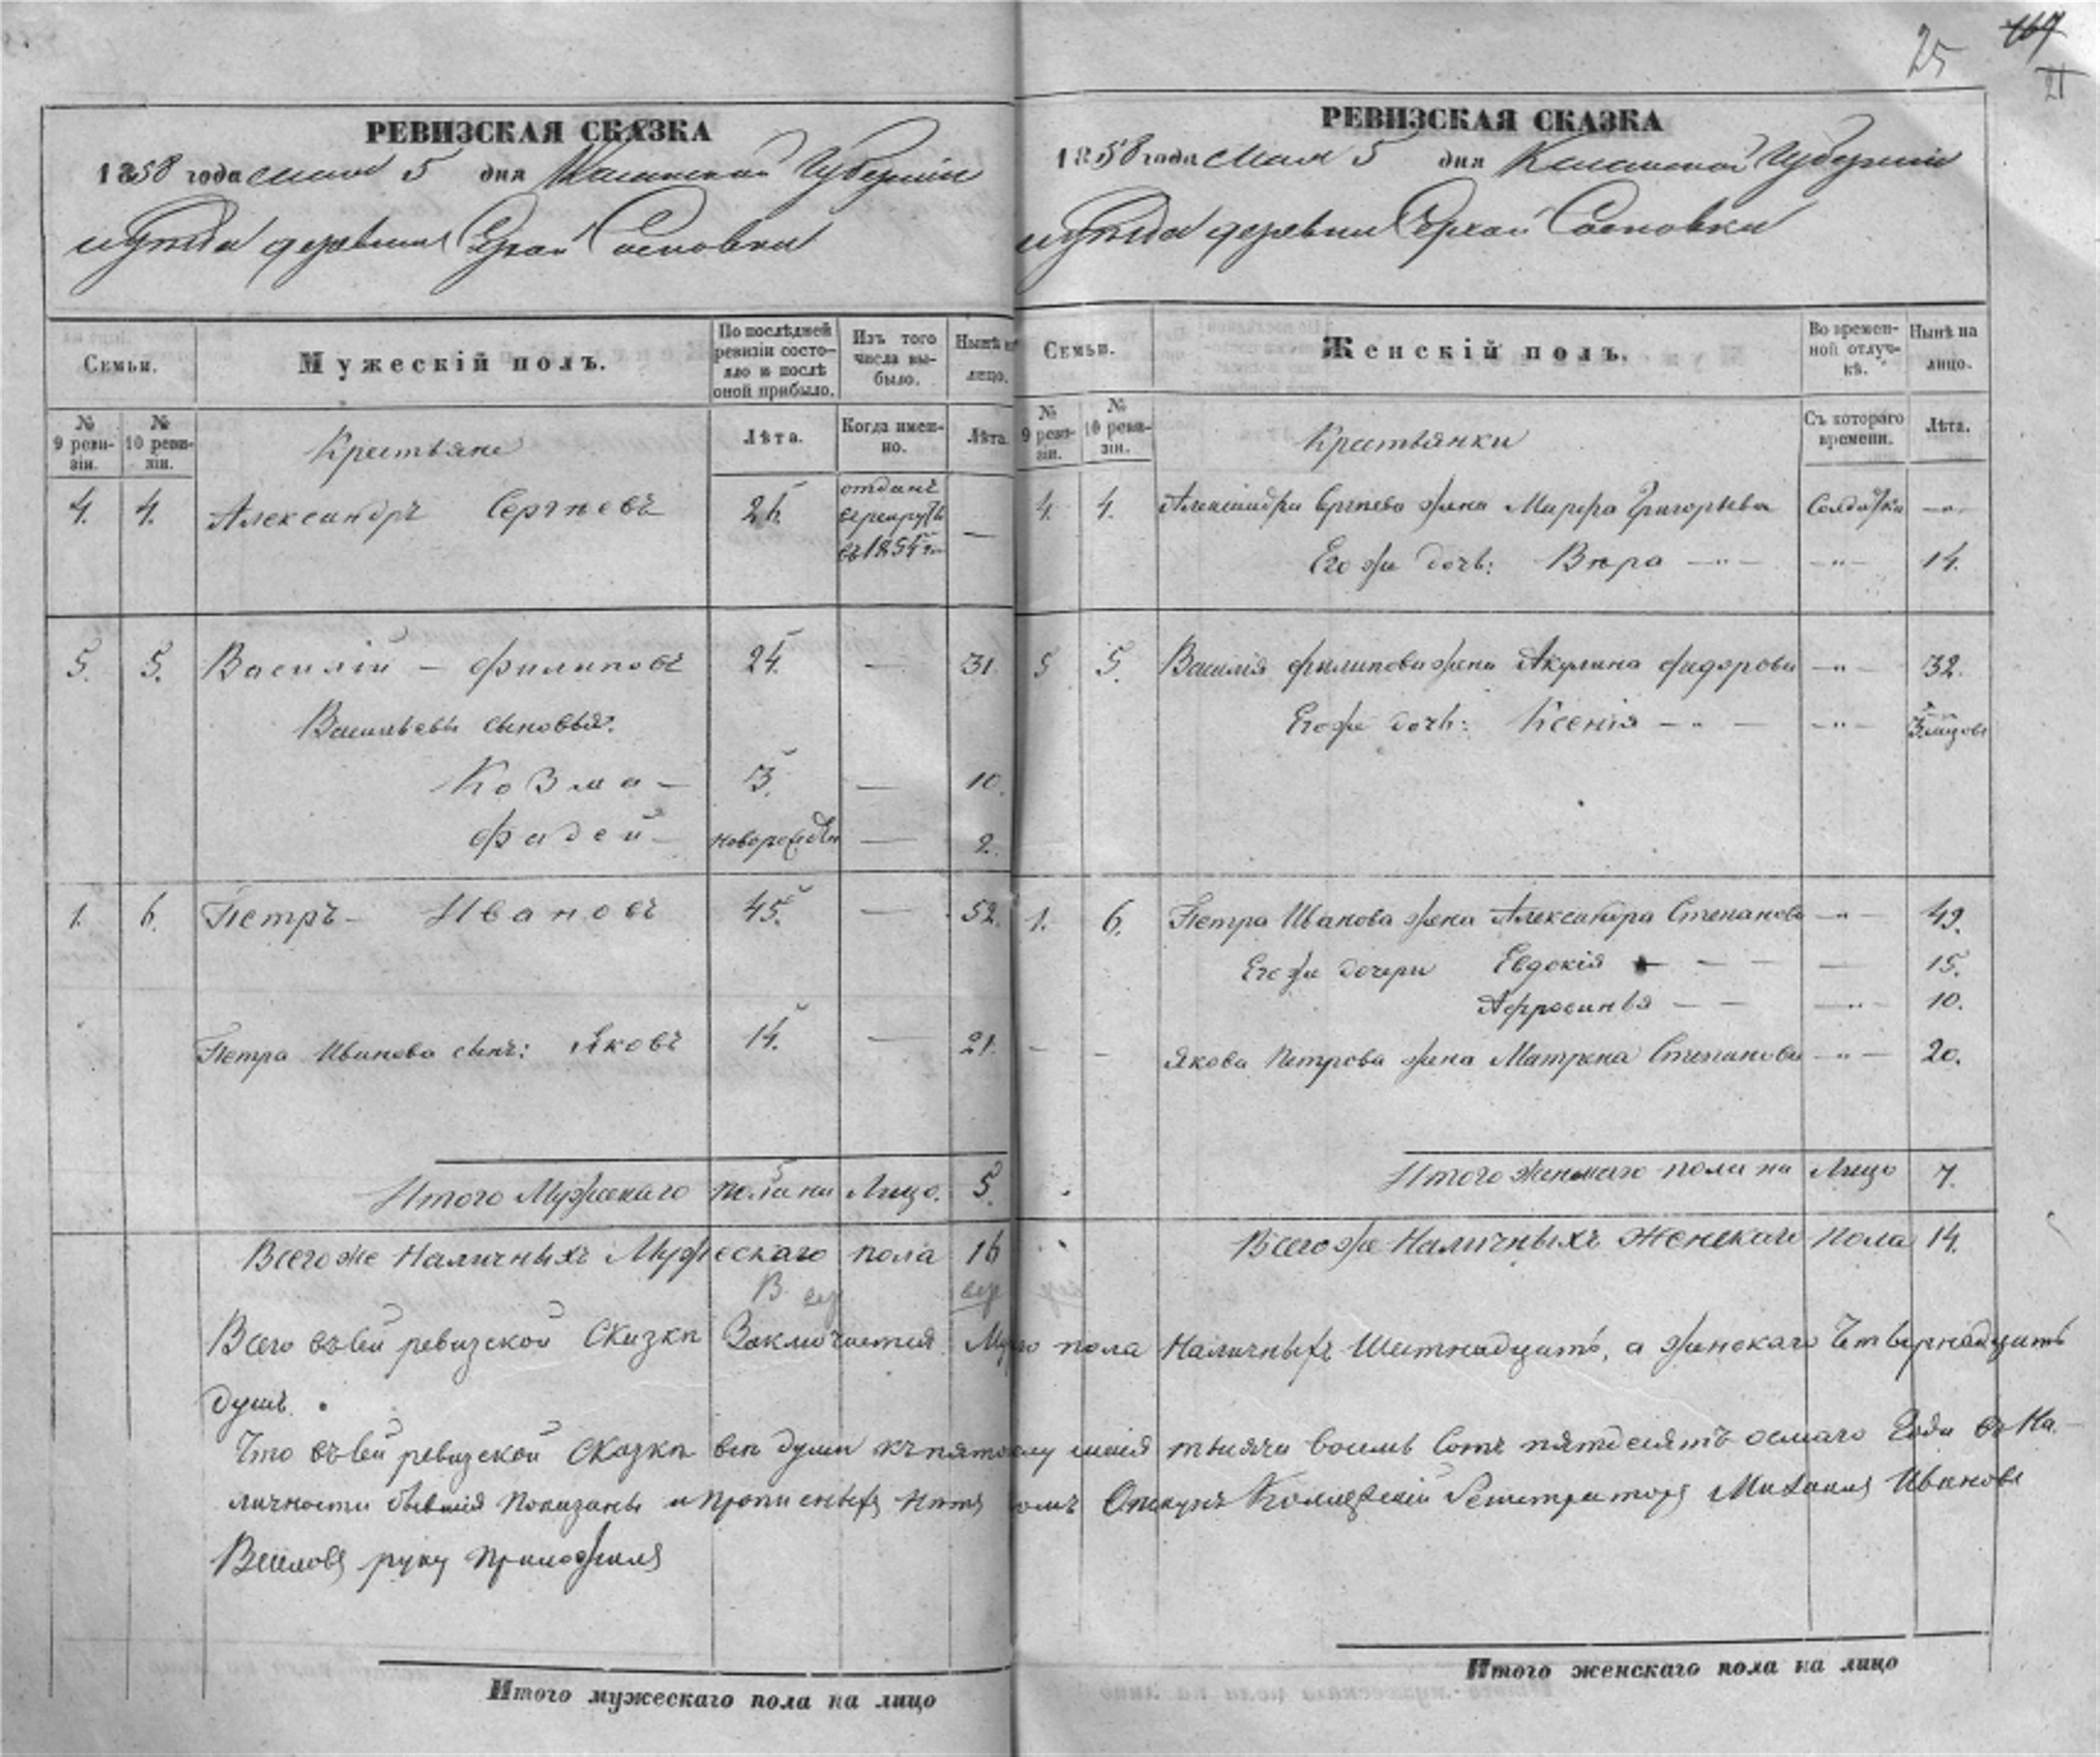 25 167
21
РЕВИЗСКАЯ СКАЗКА
1858 года мая 5 дня Казанской Губернии
уѣзда деревни Сосновки
Семьи.
Мужескій полъ.
По послѣдней ревизіи состояло и послѣ оной прибыло.
Изъ того числа выбыло.
Нынѣ на лицо.
№ 9 ревизіи.
№ 10 ревизіи.
Крестьяне
Лѣта.
Когда именно.
Лѣта.
4. 4. Александръ Сергѣевъ 26. отданъ
въ рекруты
въ 1854 г. —
5. 5. Василій — Филиповъ 24. — 31.
Васильевы сыновья:
Козма — 3. — 10.
Фадей — новорожден — 2.
1. 6. Петръ — Ивановъ 45. — 52.
Петра Иванова сынъ: Яковъ 14. — 21.
Итого Мужескаго пола на Лицо. 5.
Всего же Наличныхъ Мужескаго пола 16
РЕВИЗСКАЯ СКАЗКА
1858 года Мая 5 дня Казанской Губерніи
уѣзда деревни Сосновки
Семьи.
Женскій полъ.
Во временной отлучкѣ.
Нынѣ на лицо.
№ 9 ревизіи.
№ 10 ревизіи.
Крестьянки
Съ котораго времени.
Лѣта.
4. 4. Александра Сергѣева жена Марфа Григорьева Солдатка — " —
Его же дочь: Вѣра — " — — " — 14.
5 5. Василія Филипова жена Акулина Фидорова — " — 32.
Его же дочь: Ксенія — " — — " — 3 мѣсцовъ
1. 6. Петра Иванова жена Александра Степанова — " — 49.
Его же дочери Евдокія — — — — 15.
Афросинья — — — " — 10.
— — Якова Петрова жена Матрена Степанова — " — 20.
Итого женскаго пола на Лицо 7.
Всего же Наличныхъ Женскаго Пола 14.
Всего въ сей ревизской Сказки Заключается Муж­го пола Наличныхъ Шестнадцать, а женскаго Четырнадцать
душъ.
Что въ сей ревизской Сказки всѣ души къ пятому мая тысяча восемь сотъ пятдесятъ осмаго Года въ На-
личности бывшія показаны и прописныхъ нѣтъ томъ Опекунъ Колежскій Регистраторъ Михаилъ Ивановъ
руку приложилъ
Итого мужескаго пола на лицо
Итого женскаго пола на лицо